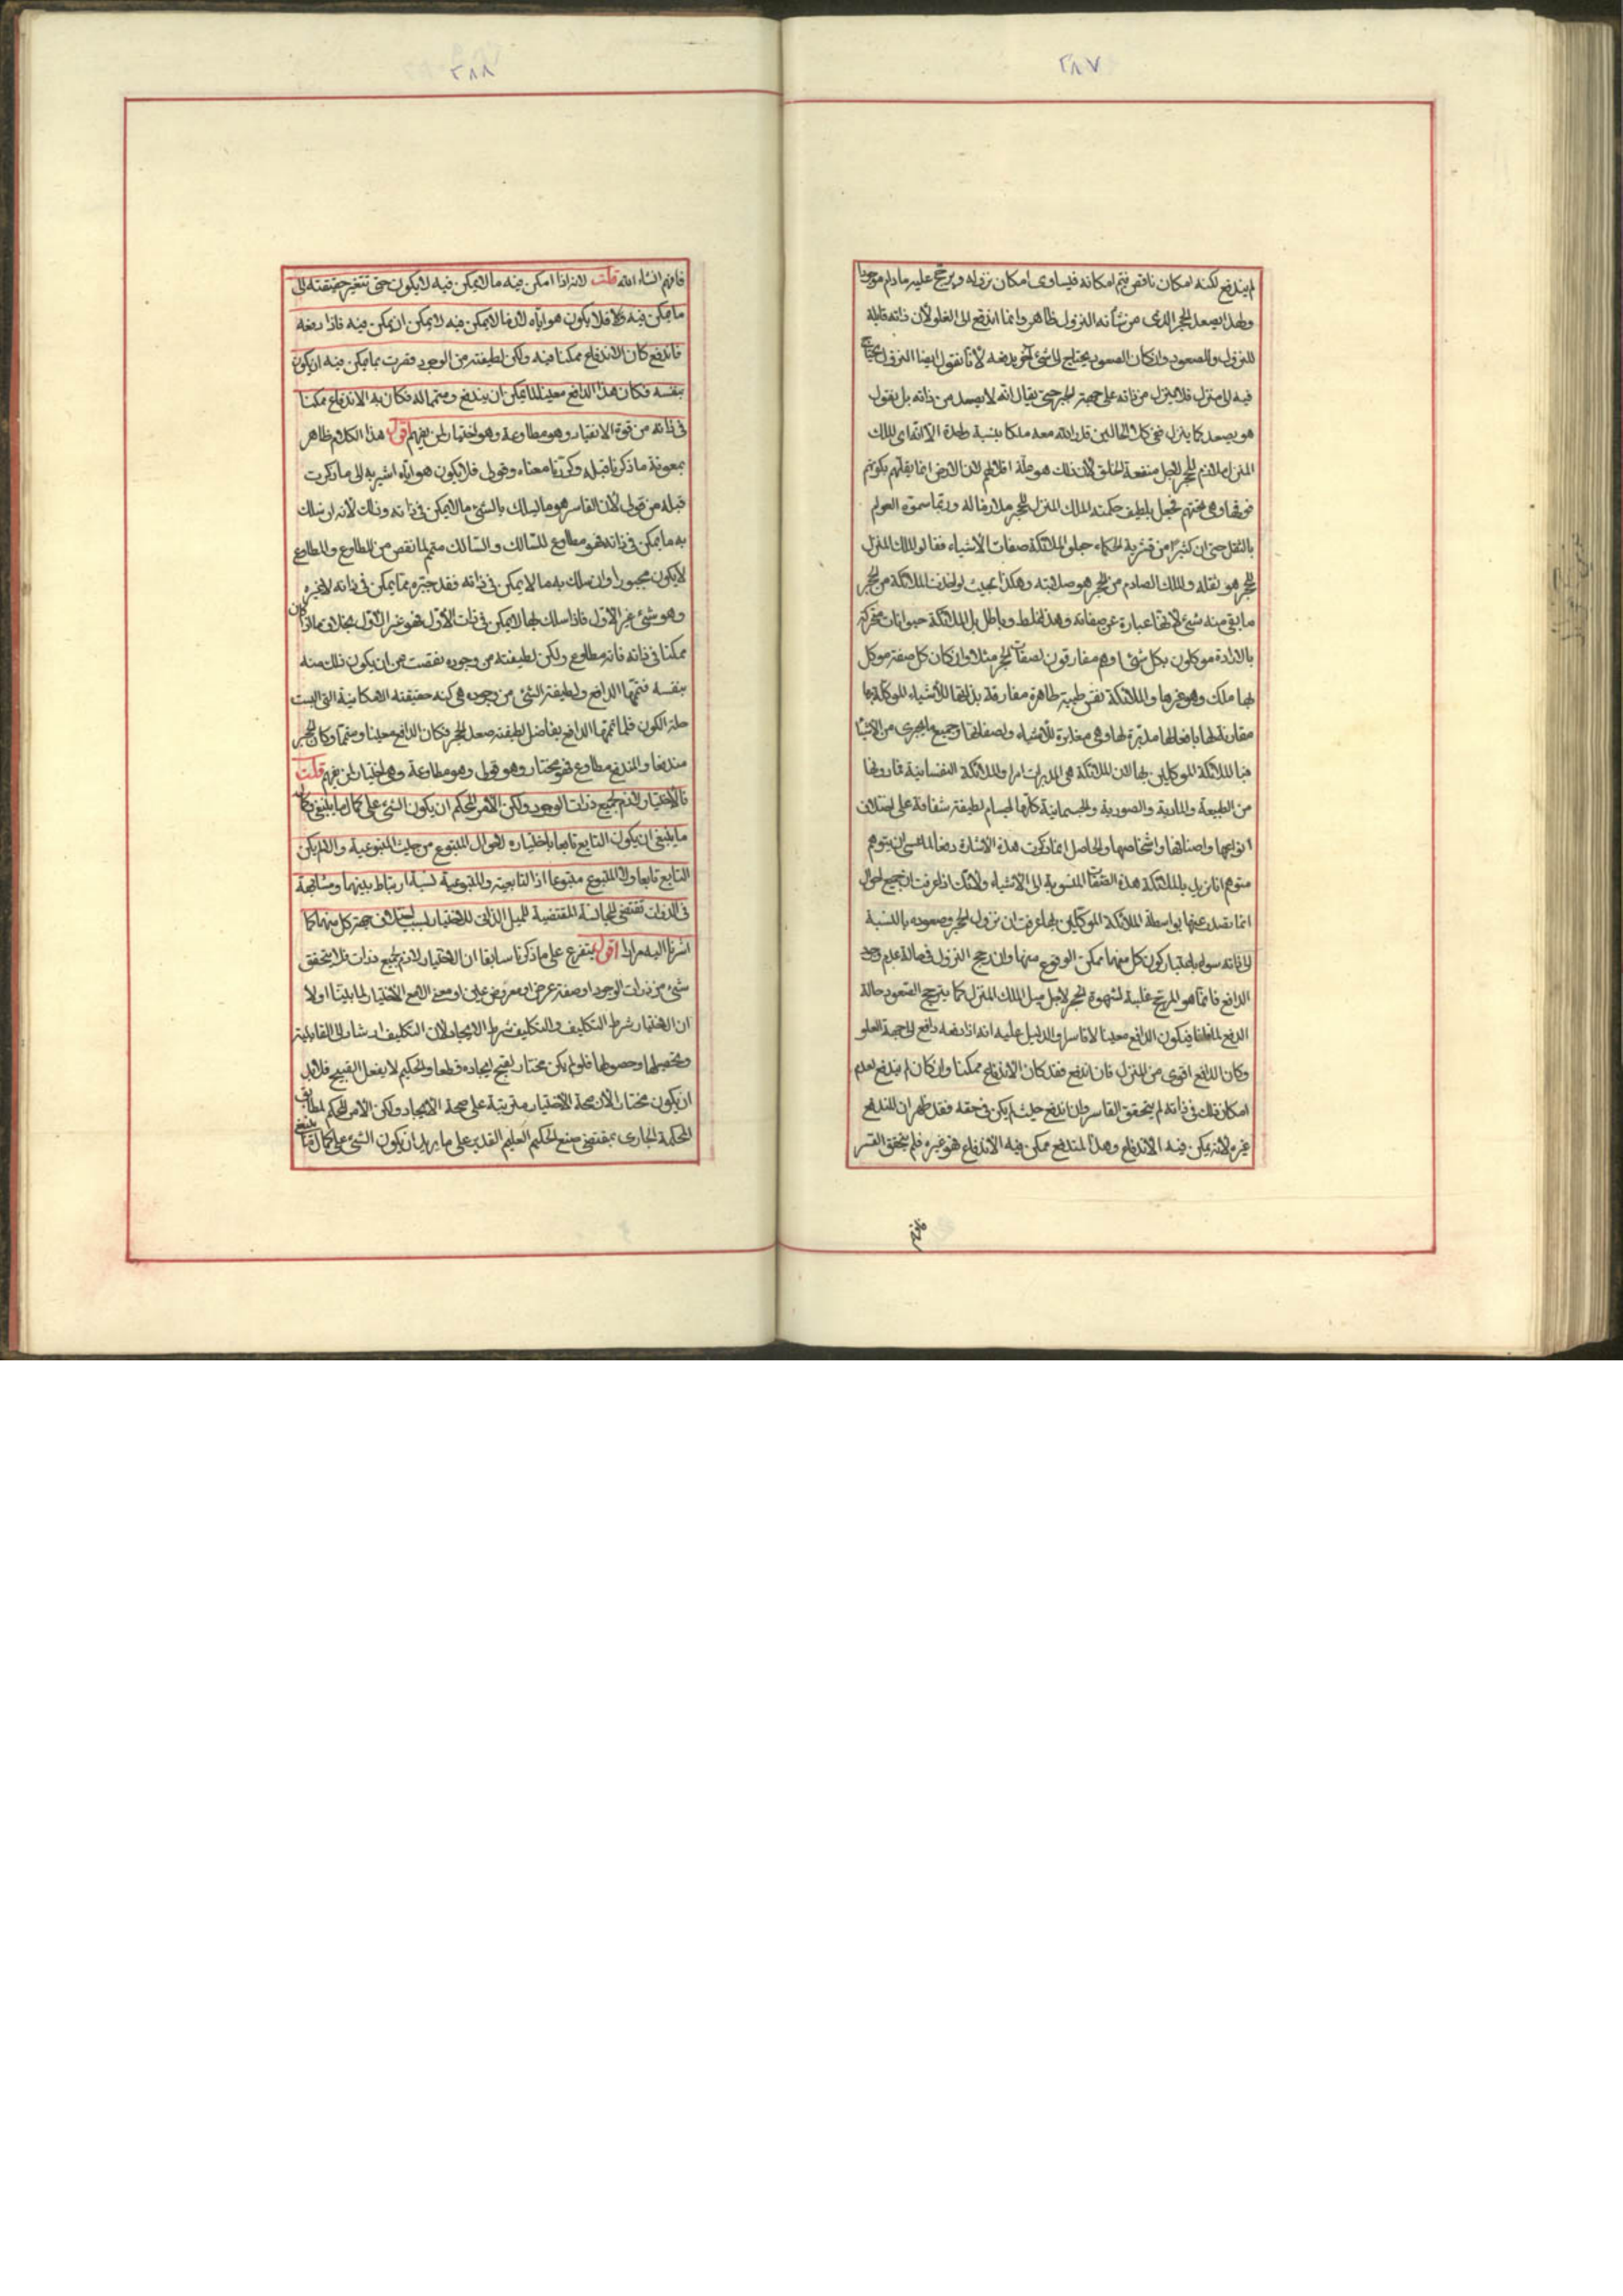 ٢٨٧
لم يندفع لكنه امكان ناقص يتم امكانه فيساوى امكان نزوله ويرجح عليه مادام موجودا
ولهذا يصعد الحجر الذى من شأنه النزول ظاهر وانما اندفع الى العلو لأن ذاته قابلة
للنزول والصعود وان كان الصعود يحتاج الى شئ آخر يدفعه لأنا نقول ايضا النزول يحتاج
فيه الى منزل فلا ينزل من ذاته على جهة الجبر حتى يقال انه لا يصعد من ذاته بل نقول
هو يصعد كما ينزل ففى كلا الحالين قدر الله معه ملكا بنسبة واحدة الا ان الملك
المنزل ملازم للحجر لاجل منفعة الخلق لأن ذلك هو علة لان الارض انما يقلهم بكونهم
فوقها وهى تحتهم فجعل بلطيف حكمته الملك المنزل للحجر ملازما له وربما سموه العوام
بالثقل حتى ان كثيرا من قشرية الحكماء جعلوا الملائكة صفات الاشياء فقالوا الملك المنزل
للحجر هو ثقله والملك الصادم من الحجر هو صلابته وهكذا بحيث لو اخذت الملائكة من الحجر
ما بقى منه شئ لانها عبارة عن صفاته وهذا غلط وباطل بل الملائكة حيوانات متحركة
بالارادة موكلون بكل شئ وهم مفارقون لصفات الحجر مثلا وان كان كل صفة موكل
بها ملك وهو غيرها والملائكة نفس طيبة طاهرة مفارقة بذاتها للأشياء الموكلة بها
مقارنة لها بافعالها مدبرة لها وهى مغايرة للأشياء ولصفاتها وجميع ما يجرى من الاشيا
فبالملائكة الموكلين بها لان الملائكة هى المدبرات امرا والملائكة النفسانية فما دونها
من الطبيعة والمادية والصورية والجسمانية كلها اجسام لطيفة شفافة على اختلاف
انواعها واصنافها واشخاصها والحاصل انما ذكرت هذه الاشارة دفعا لما عسى ان يتوهم
متوهم انا نريد بالملائكة هذه الصفات المنسوبة الى الاشياء ولأنك اذا عرفت ان جميع احوال
انما تصدر عنها بواسطة الملائكة الموكلين بها عرفت ان نزول الحجر وصعوده بالنسبة
الى ذاته سواء باعتبار كون كل منهما ممكن الوقوع منها وان رجح النزول فى حالة عدم وجود
الدافع فانما هو المرجح غلبة لشهوة الحجر لاجل ميل الملك المنزل كما يترجح الصعود حالة
الدفع فيكون الدافع معينا لا قاسرا والدليل عليه انه اذا دفعه دافع الى جهة العلو
وكان الدافع اقوى من المنزل فان اندفع فقد كان الاندفاع ممكنا وان كان لم يندفع لعدم
امكان ذلك فى ذاته لم يتحقق القاسر وان اندفع حيث لم يكن فى حقه فقد ظهر ان المندفع
غيره لانه يمكن فيه الاندفاع وهذا المندفع ممكن فيه الاندفاع فهو غيره فلم يتحقق القسر
فافهم
٢٨٨
فافهم انشاء الله قلت لانه اذا امكن فيه ما لا يمكن فيه لا يكون حتى تتغير حقيقته الى
ما يمكن فيه فلا يكون هو اياه لان ما لا يمكن فيه لا يمكن ان يمكن فيه فاذا دفعه
فاندفع كان الاندفاع ممكنا فيه ولكن لطيفته من الوجود قصرت بما يمكن فيه ان يكون
بنفسه فكان هذا الدافع معينا لما يمكن ان يندفع ومتمما له فكان به الاندفاع ممكنا
فى ذاته من قوة الانقياد وهو مطاوعة وهو اختيار لمن يفهم اقول هذا الكلام ظاهر
بمعونة ما ذكرنا قبله وكررنا معناه وقولى فلا يكون هو اياه اشير به الى ما ذكرت
قبله من قولى لأن القاسر هو ما يسلك بالشئ ما لا يمكن فى ذاته وذلك لأنه ان سلك
به ما يمكن فى ذاته فهو مطاوع للسالك والسالك متمم لما نقص من المطاوع والمطاوع
لا يكون مجبورا وان سلك به ما لا يمكن فى ذاته فقد جبره بما يمكن فى ذاته لا غيره
وهو شئ غير الاول فاذا سلك بها ما لا يمكن فى ذات الأول فهو غير الاول بخلاف ما اذا كان
ممكنا فى ذاته فانه مطاوع ولكن لطيفته من وجوده نقصت عن ان يكون ذلك منه
بنفسه فتممها الدافع ولطيفة الشئ من وجوده هى كنه حقيقته الامكانية التى البست
حلة الكون فلما تممها الدافع بفاضل لطيفته صعد الحجر فكان الدافع معينا ومتمما وكان الحجر
مندفعا والمندفع مطاوع فهو مختار وهو قولى وهو مطاوعة وهى اختيار لمن يفهم قلت
فالاختيار لازم لجميع ذرات الوجود ولكن الأمر المحكم ان يكون الشئ على كمال ما ينبغى وكمال
ما ينبغى ان يكون التابع تابعا باختياره لاحوال المتبوع من حيث المتبوعية والا لم يكن
التابع تابعا ولا المتبوع متبوعا اذ التابعية والمتبوعية نسبة ارتباط بينهما ومشابهة
فى الذوات تقتضى المجانسة المقتضية للميل الذاتى للاختيار بسبب اختلاف جهة كل منهما كما
اشرنا اليه مرارا اقول يتفرع على ما ذكرنا سابقا ان الاختيار لازم لجميع ذرات فلا يتحقق
شئ من ذرات الوجود او صفة عرض او معروض عين او معنى الا مع الاختيار لما بينا اولا
ان الاختيار شرط التكليف والتكليف شرط الايجاد لان التكليف ارشاد الى القابلية
وتحصيلها وحصولها فلو لم يكن مختارا لقبح ايجاده قطعا والحكيم لا يفعل القبيح فلابد
ان يكون مختارا لان صحة الاختيار مترتبة على صحة الايجاد ولكن الامر المحكم المطابق
للحكمة الجارى بمقتضى صنع الحكيم العليم القدير على ما يريد ان يكون الشئ على كمال ما ينبغى